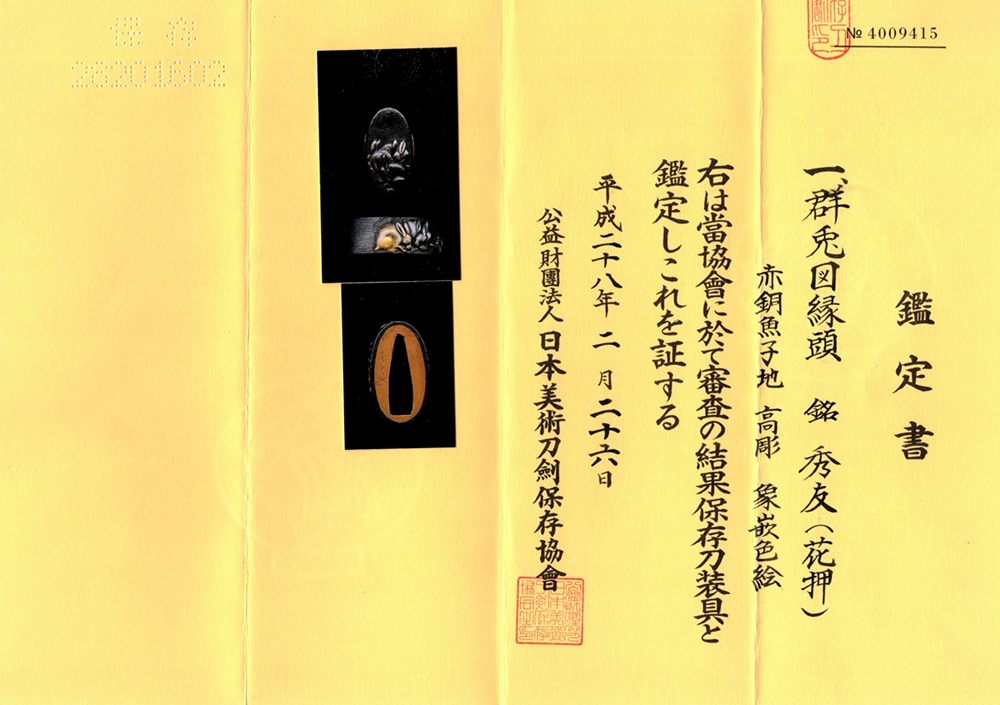 № 4009415
鑑定書
一、群兎図縁頭 銘 秀友（花押）
赤銅魚子地 高彫 象嵌色絵
右は當協會に於て審査の結果保存刀装具と
鑑定しこれを証する
平成二十八年 二月二十六日
公益財團法人 日本美術刀劍保存協會
保存
28201602